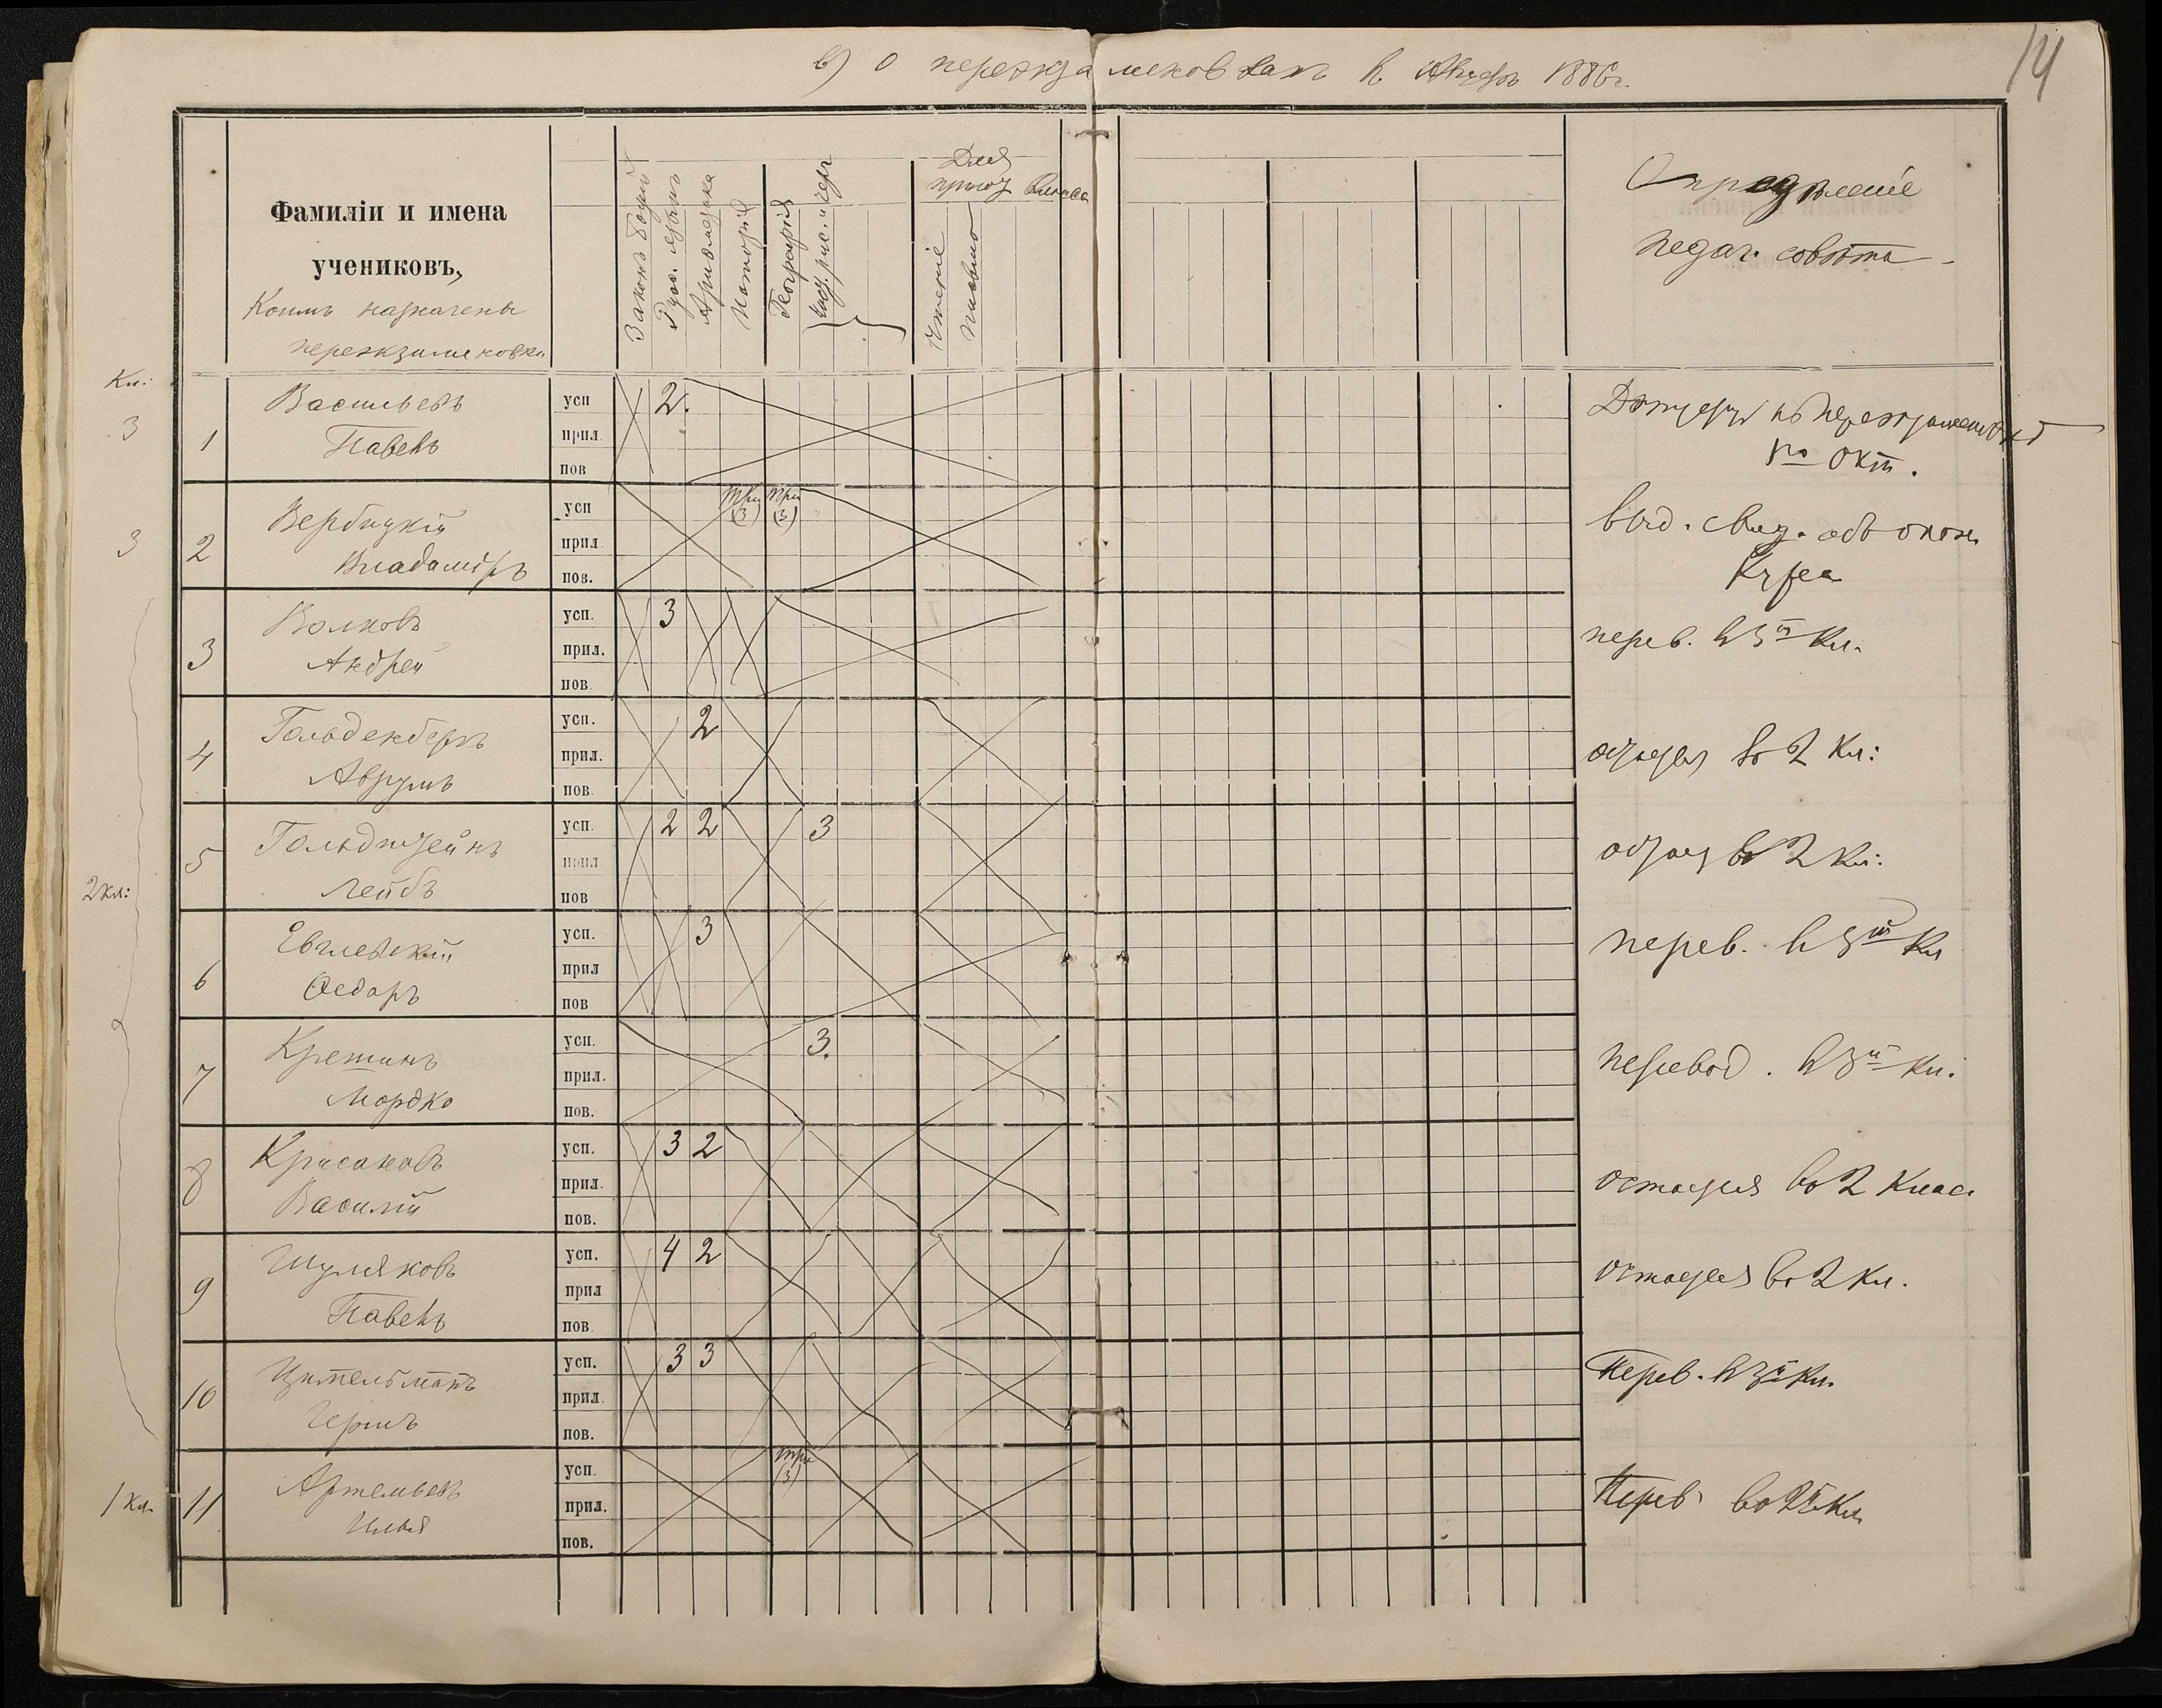 в) о переэкзаменовкахъ въ 1886 г.
14
Фамиліи и имена
учениковъ,
Коимъ назначены
переэкзаменовки
Законъ Божій
Русс. языкъ
Ариѳметика
Исторія
Географія
рис. и черч
Для
пригот класса
Чтеніе
Письмо
Опредѣленіе
педаг. совѣта
Кл:
3
1
Васильевъ
Павелъ
усп
прил.
пов
2.
по окт.
3
2
Вербицкій
Владиміръ
усп
прил
пов.
три
(3)
три
(3)
выд. свид. объ оконч
Курса
3
Волковъ
Андрей
усп.
прил.
пов.
3
перев. въ 3й Кл.
4
Гольденбергъ
Аврумъ
усп.
прил.
пов.
2
остается во 2 Кл:
2 кл:
5
Гольдштейнъ
Лейбъ
усп.
прил
пов
2 2 3
остает во 2 Кл:
6
Евглевскій
Ѳедоръ
усп.
прил
пов
3
перев. въ 3й Кл
7
Кретинъ
Мордко
усп.
прил.
пов.
3.
перевод. въ 3й Кл.
8
Кусаковъ
Василій
усп.
прил.
пов.
3 2
остается во 2 Клас
9
Шуляковъ
Павелъ
усп.
прил
пов.
4 2
остается во 2 Кл.
10
Цительманъ
Гершъ
усп.
прил.
пов.
3 3
Перев. въ 3й Кл.
1 кл.
11
Артемьевъ
Илья
усп.
прил.
пов.
три
(3)
Перев. во 2й Кл.